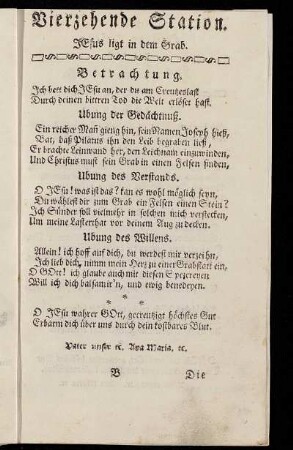 Vierzehende Station.
JEsus ligt in dem Grab.
Betrachtung.
Ich bett dich JEsu an, der du am Creutzeslast
Durch deinen bittren Tod die Welt erlöset hast.
Ubung der Gedächtnuß.
Ein reicher Mañ gieng hin, sein Namen Joseph hieß,
Bat, daß Pilatus ihn den Leib begraben ließ,
Er brachte Leinwand her, den Leichnam einzuwinden,
Und Christus must sein Grab in einen Felsen finden,
Ubung des Verstands.
O JEsu! was ist das? kan es wohl möglich seyn,
Du wählest dir zum Grab ein Felsen einen Stein?
Ich Sünder soll vielmehr in solchen mich verstecken,
Um meine Lasterthat vor deinem Aug zu decken.
Ubung des Willens.
Allein! ich hoff auf dich, du werdest mir verzeihn,
Ich lieb dich, nimm mein Herz zu einer Grabstatt ein,
O GOtt! ich glaube auch mit diesen Specereyen
Will ich dich balsamir'n, und ewig benedeyen.
* * *
O JEsu wahrer GOtt, gecreutzigt höchstes Gut
Erbarm dich über uns durch dein kostbares Blut.
Vater unser ꝛc. Ava Maria, ꝛc.
B Die